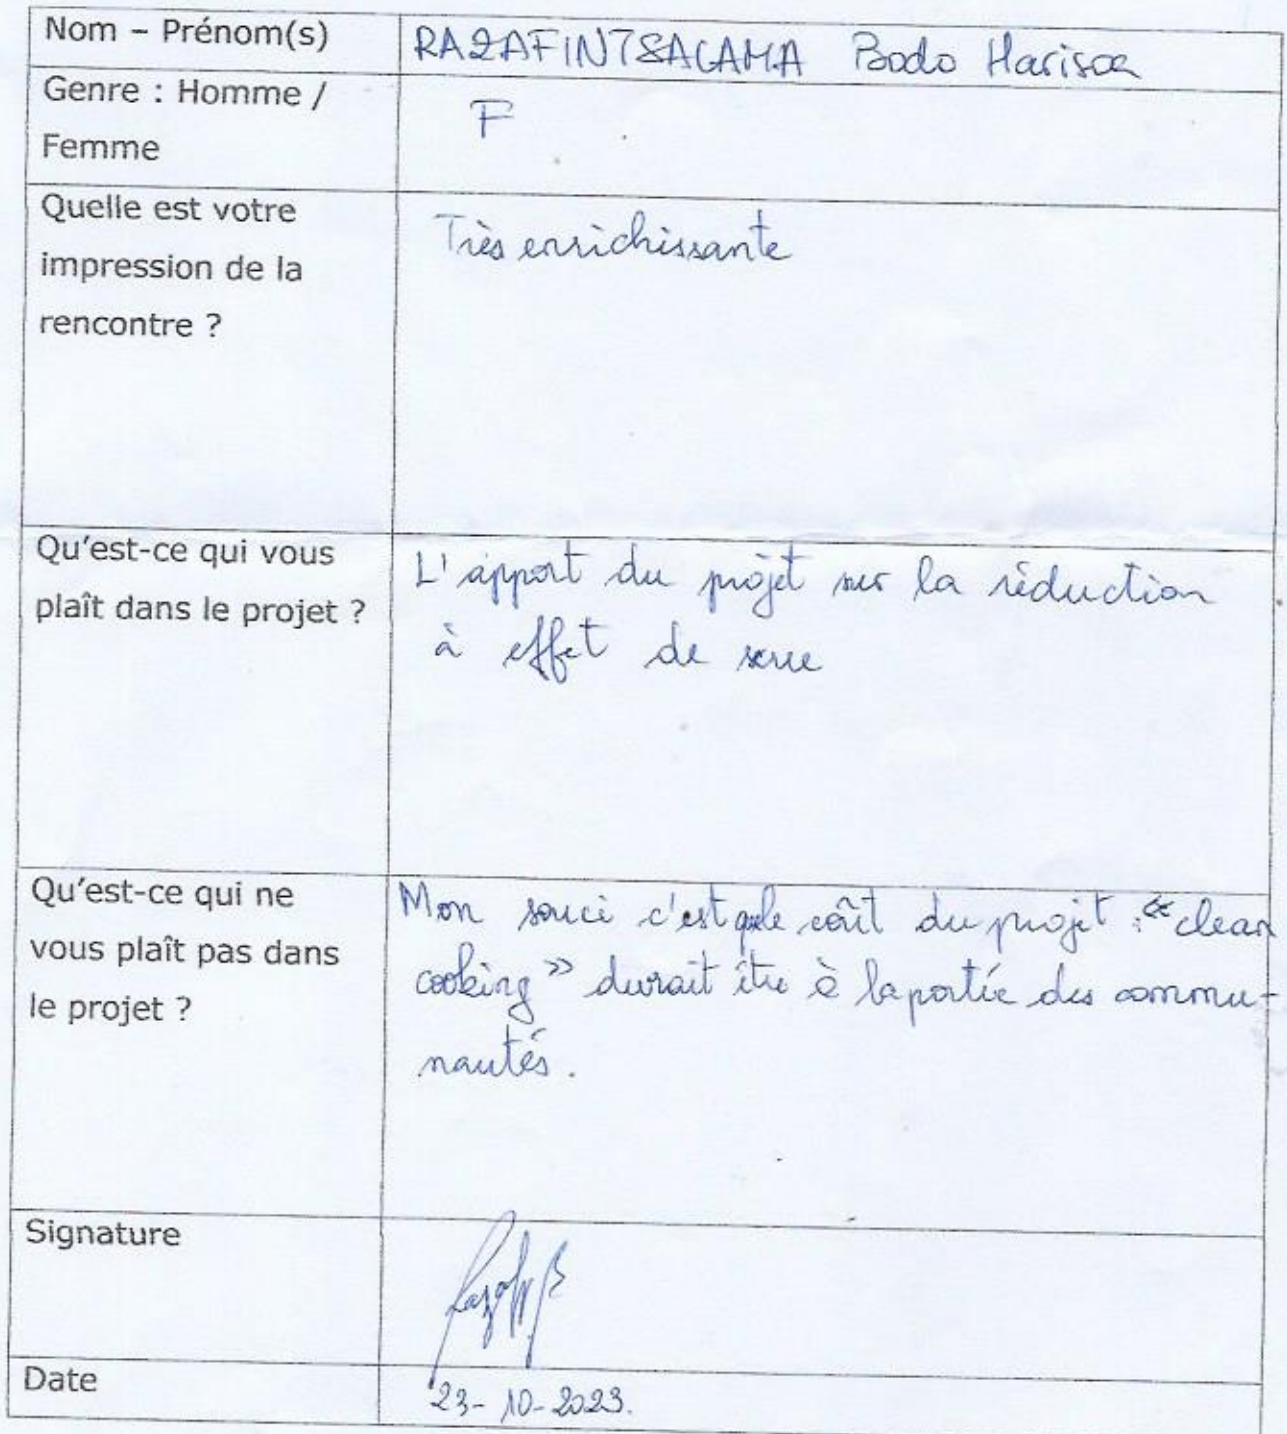 Nom – Prénom(s)
RAZAFINTSALAMA Bodo Harisoa
Genre : Homme /
Femme
F
Quelle est votre
impression de la
rencontre ?
Très enrichissante
Qu'est-ce qui vous
plaît dans le projet ?
L'apport du projet sur la réduction
à effet de serre
Qu'est-ce qui ne
vous plaît pas dans
le projet ?
Mon souci c'est que le coût du projet : « clean
cooking » devrait être à la portée des commu-
nautés.
Signature
Date
23-10-2023.